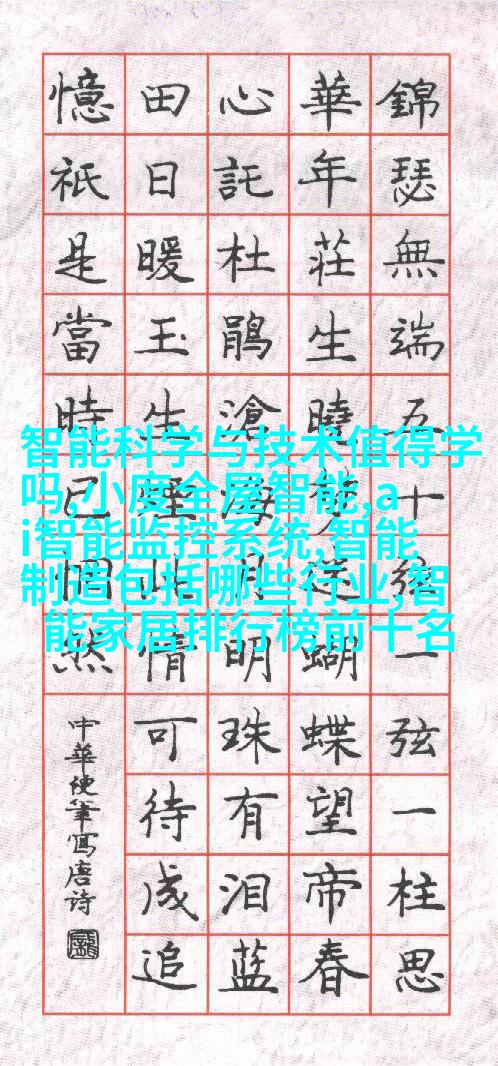 錦瑟無端五十絃一弦一柱思
華年莊生曉夢迷蝴蝶望帝春
心託杜鵑滄海月明珠有泪蓝
田日暖玉生煙此情可待成追
憶祇是當時已惘然
中華便筆寫唐诗
智能科学与技术值得学
吗,小度全屋智能,a
i智能监控系统,智能
制造包括哪些行业,智
能家居排行榜前十名